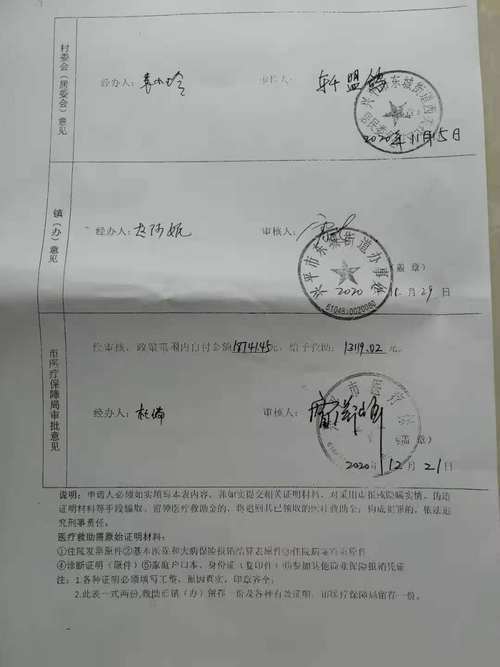 村委会（居委会）意见
经办人：
审核人：
2020年11月15日
镇（办）意见
经办人：
审核人：
兴平市东城街道办事处
6104810020080
（盖章）
2020 11月29日
市医疗保障局审批意见
经审核，政策范围内自付金额18741.45元，给予救助：13119.02元。
经办人：
审核人：
（盖章）
2020年12月21日
说明：申请人必须如实填写本表内容，并如实提交相关证明材料，对采用虚报或隐瞒实情、伪造
证明材料等手段骗取、冒领医疗救助金的，将追回其已领取的医疗救助金；构成犯罪的，依法追
究刑事责任。
医疗救助需原始证明材料：
①住院发票原件②基本医保和大病保险报销结算表原件③住院病案首页原件
④诊断证明（原件）⑤家庭户口本、身份证（复印件）⑥参加其他商业保险报销凭证
注：1.各种证明必须填写工整，原因真实，印章齐全；
2.此表一式两份，救助后镇（办）留存一份及各种有效证明，市医疗保障局留存一份。